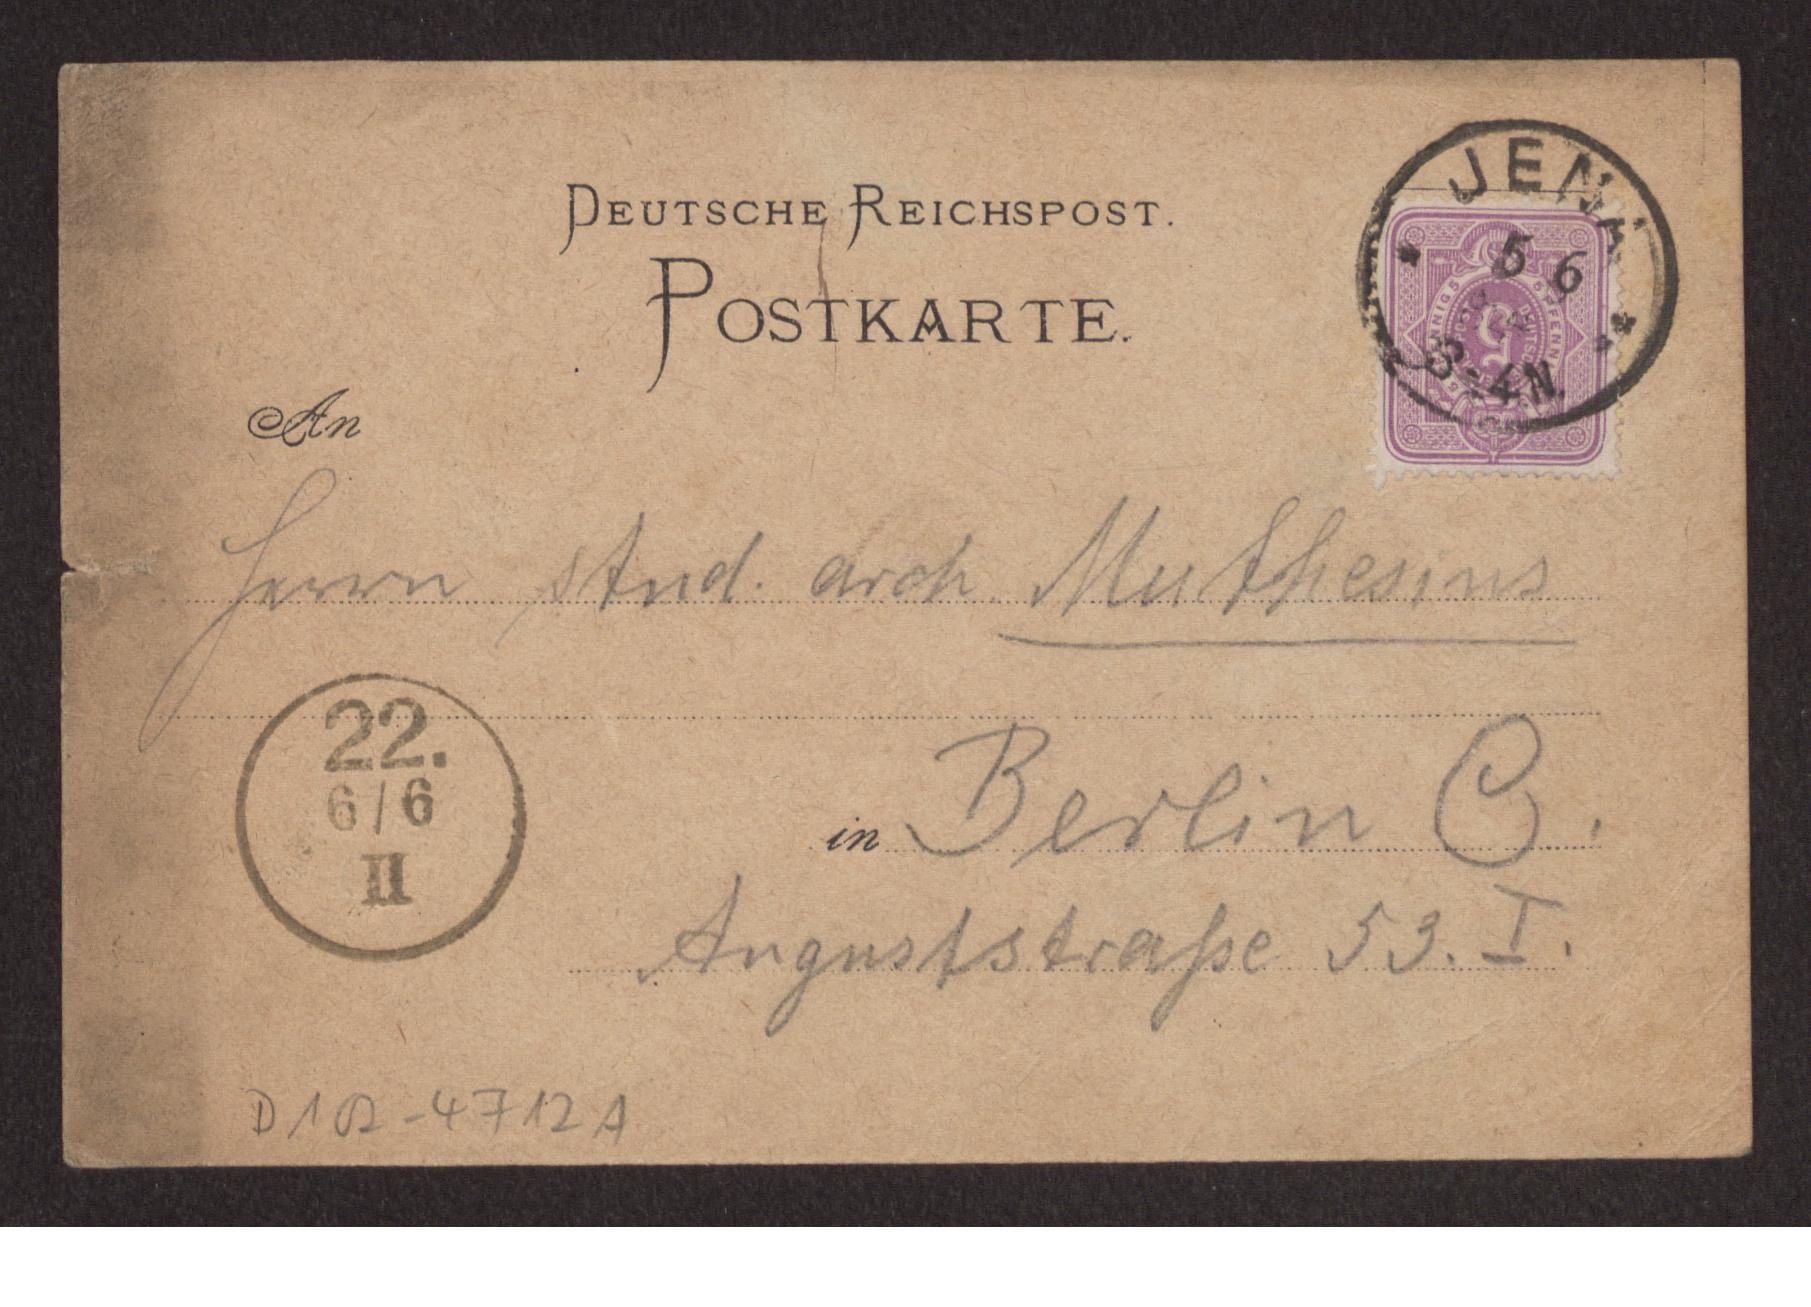 DEUTSCHE REICHSPOST.
POSTKARTE.
JENA
5 6
3-4N.
An
Herrn stud. arch. Muthesius
22.
6/6
II
in Berlin C.
Auguststraße 53. I.
D102-4712A